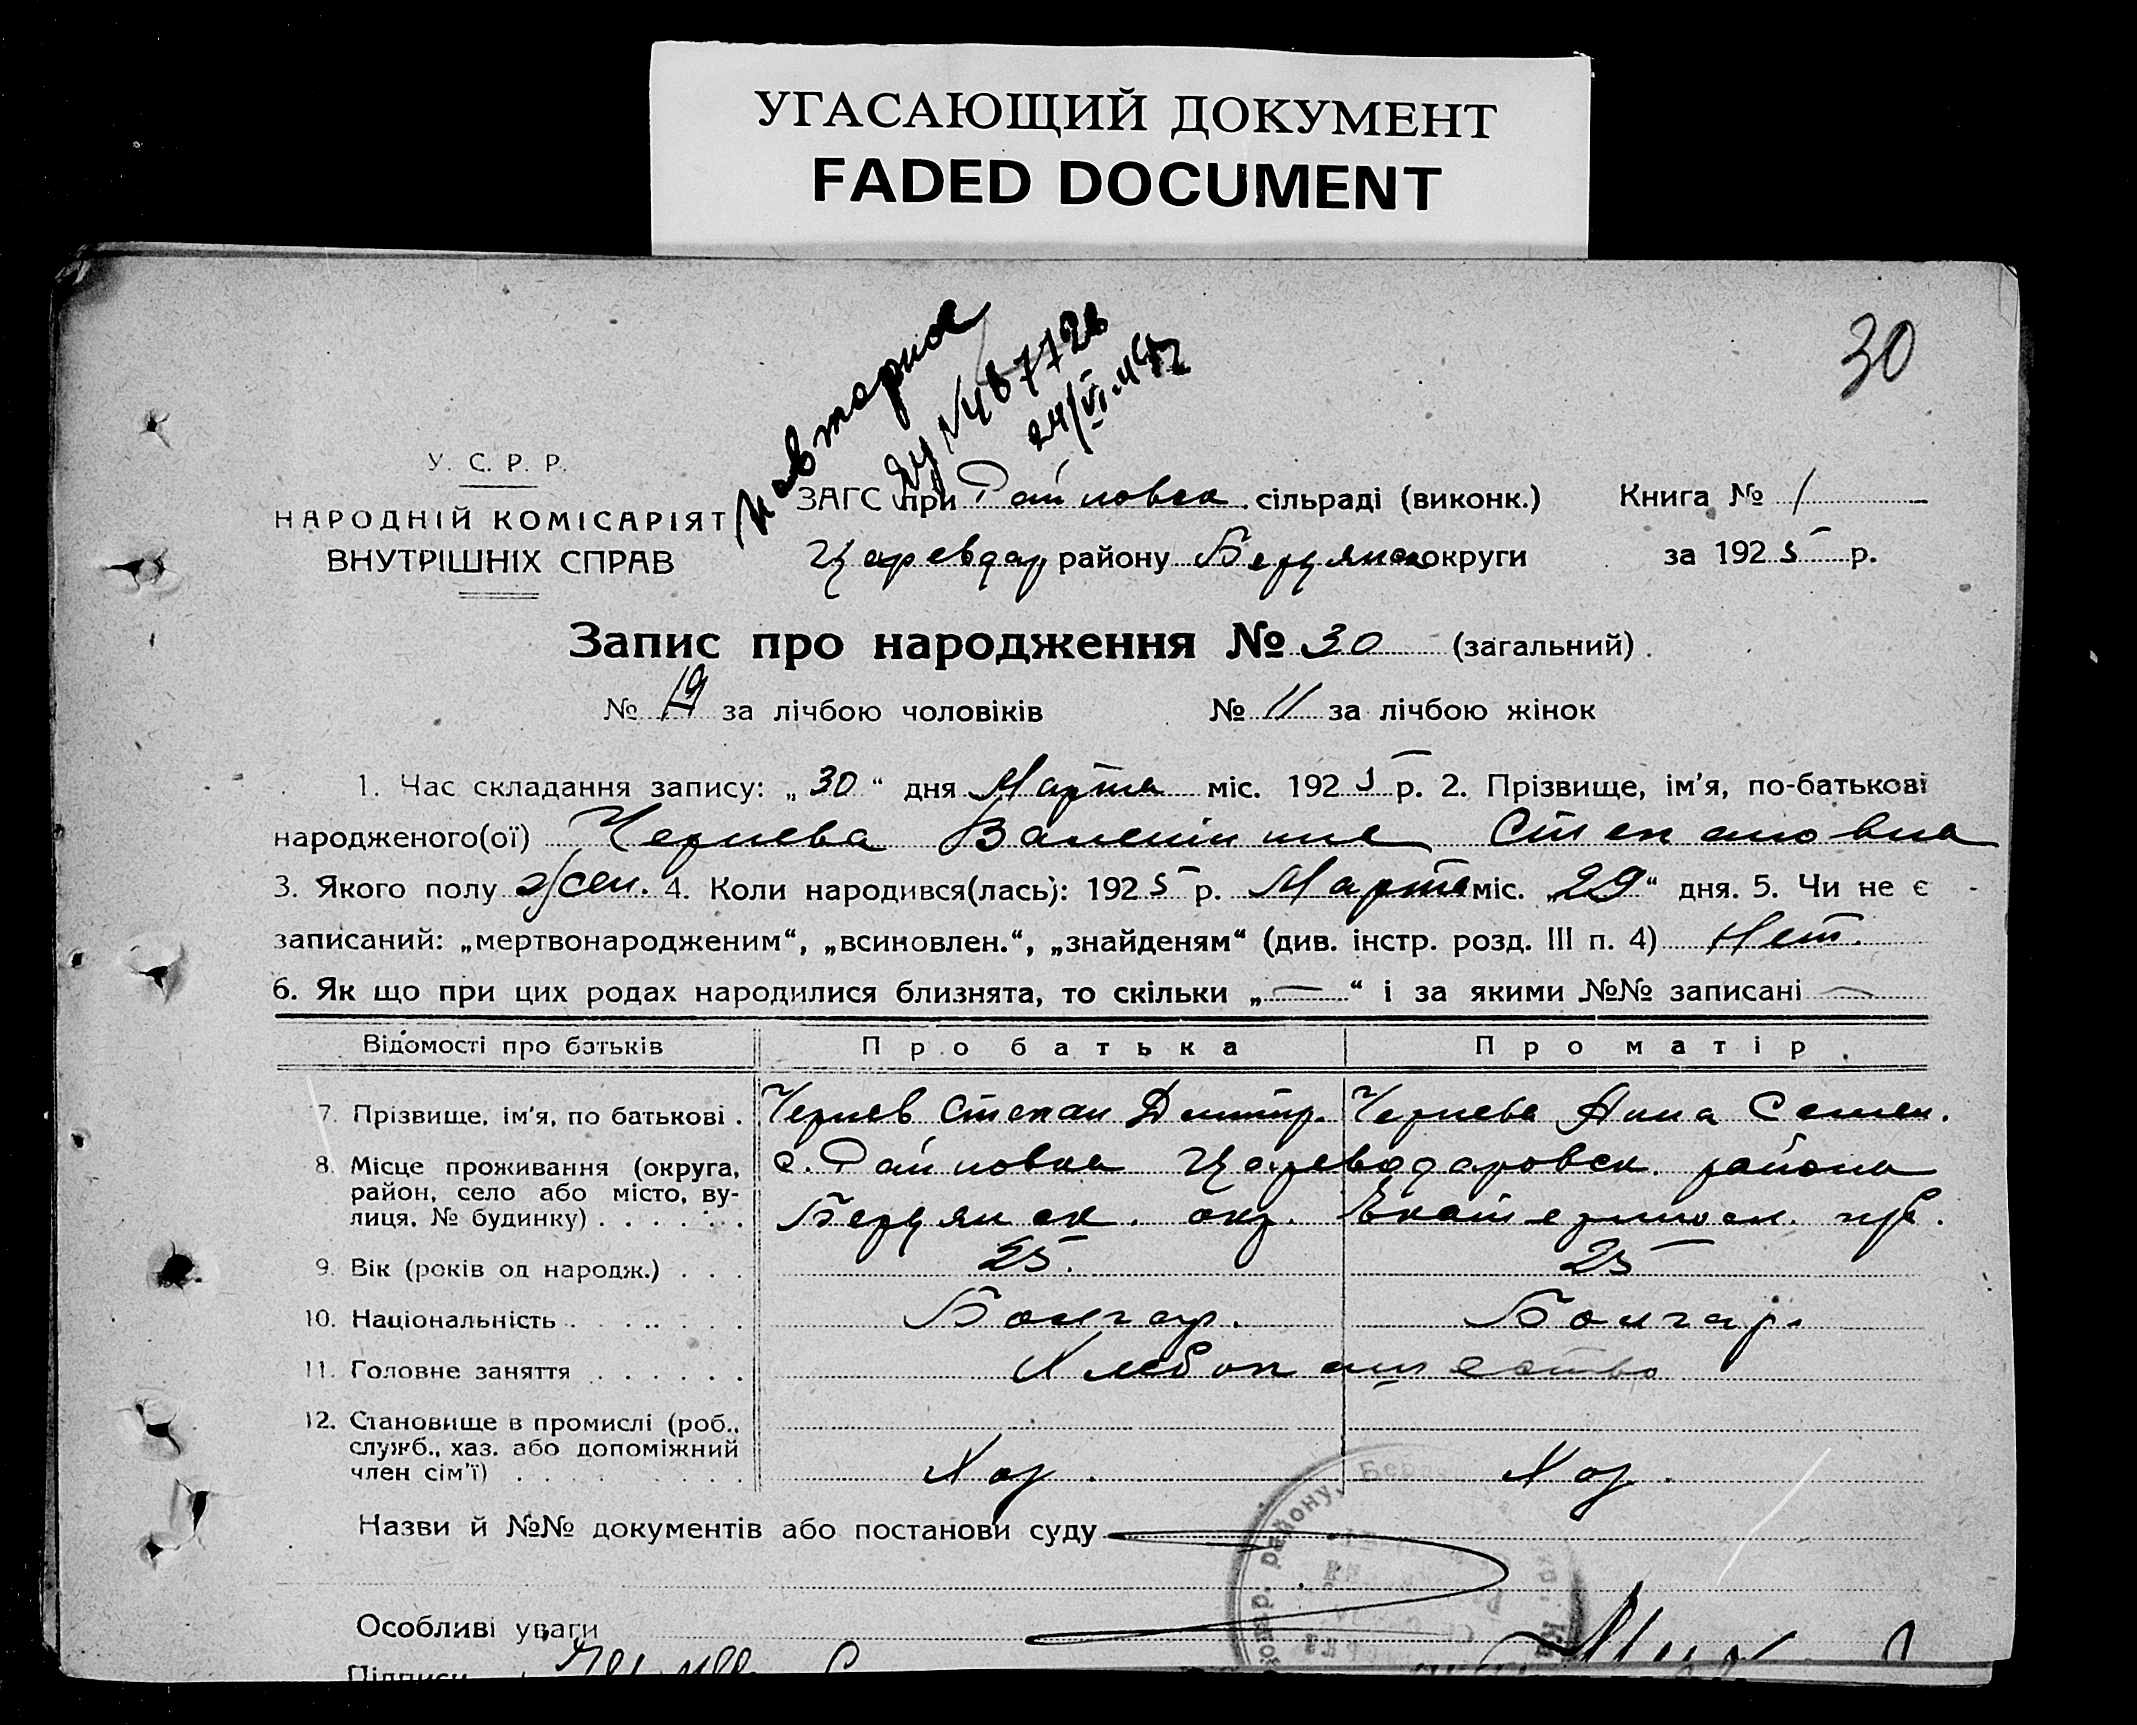 УГАСАЮЩИЙ ДОКУМЕНТ
FADED DOCUMENT
30
Повторное
№ 487726
24/VI-1942
У. С. Р. Р.
НАРОДНІЙ КОМІСАРІЯТ
ВНУТРІШНІХ СПРАВ
ЗАГС при Райновск. сільраді (виконк.) Книга № 1
Царевдар району Бердянск округи за 1925 р.
Запис про народження № 30 (загальний).
№ 19 за лічбою чоловіків № 11 за лічбою жінок
1. Час складання запису: „30“ дня Марта міс. 1925 р. 2. Прізвище, ім'я, по-батькові
народженого(ої) Чернева Валентина Степановна
3. Якого полу жен. 4. Коли народився(лась): 1925 р. Марта міс. „29“ дня. 5. Чи не є
записаний: „мертвонародженим“, „всиновлен.“, „знайденям“ (див. інстр. розд. III п. 4) Нет.
6. Як що при цих родах народилися близнята, то скільки „—“ і за якими №№ записані —
Відомості про батьків Про батька Про матір.
7. Прізвище, ім'я, по батькові . Чернев Степан Дмитр. Чернева Анна Семен.
8. Місце проживання (округа, с. Райновка Цареводаровск. района
район, село або місто, ву-
лиця, № будинку) . . . . . . Бердянск. окр. Екатериносл. губ.
9. Вік (років од народж.) . . . 25. 25
10. Національність . . . . . . . Болгар. Болгар.
11. Головне заняття . . . . . . Хлебопашество
12. Становище в промислі (роб.,
служб., хаз. або допоміжний
член сім'ї) . . . . . . . Хоз. Хоз.
Назви й №№ документів або постанови суду
району,
Особливі уваги
Підписи